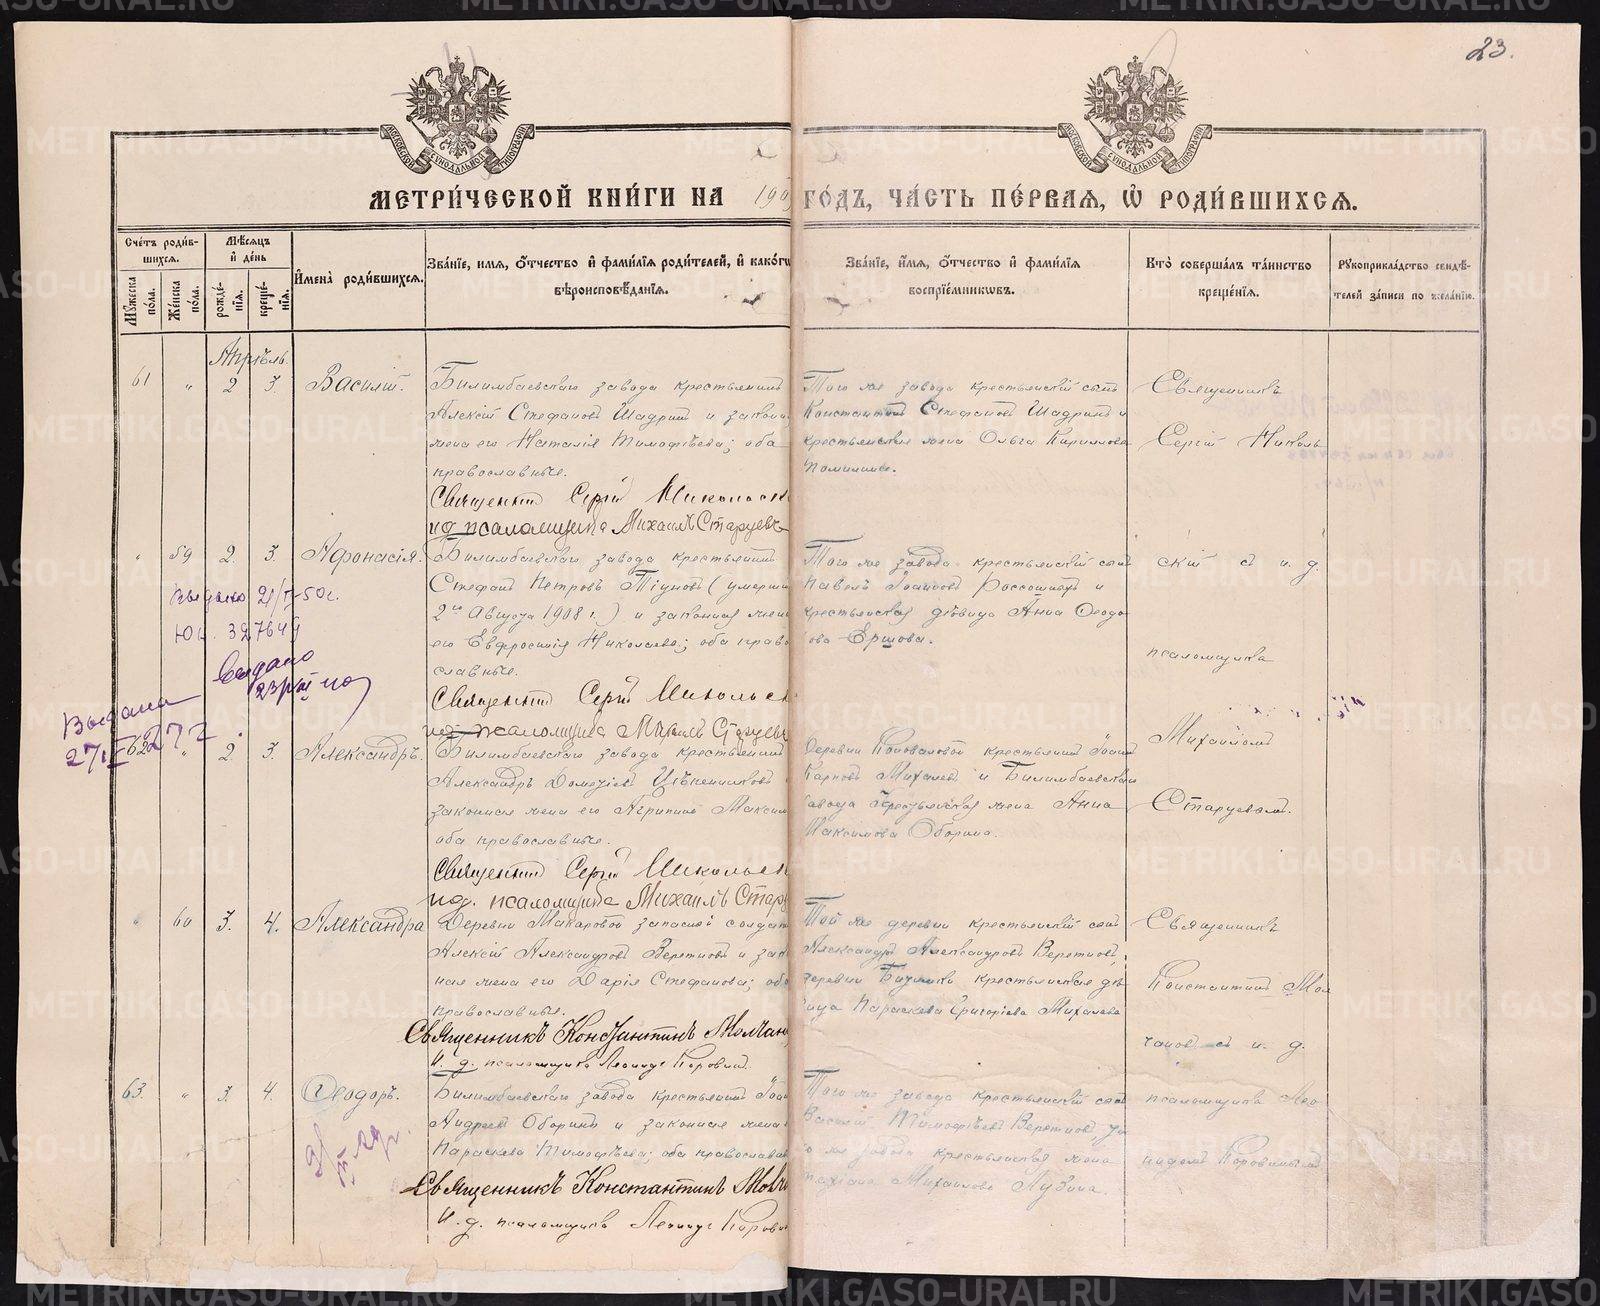 23.
МОСКОВСКОЙ СУНОДАЛЬНОЙ ТИПОГРАФІИ
МОСКОВСКОЙ СУНОДАЛЬНОЙ ТИПОГРАФІИ
МЕТРИ́ЧЕСКОЙ КНИ́ГИ НА 190
ГО́ДЪ, ЧА́СТЬ ПЕ́РВАЯ, Ѡ РОДИ́ВШИХСЯ.
Сче́тъ роди́в-
шихся.
Мужеска по́ла.
Же́нска по́ла.
Мѣсяцъ
и де́нь
рожде́-
нія.
креще́-
нія.
Имена̀ роди́вшихся.
Зва́ніе, имя, отчество и фами́лія роди́телей, и како́гѡ
вѣроисповѣданія.
Зва́ніе, и́мя, отчество и фами́лія
воспріе́мникѡвъ.
Кто̀ соверша́лъ та́инство
креще́нія.
Рукоприкла́дство свидѣ-
телей за́писи по жела́нію.
Апрѣль.
61 " 2 3. Василій.
Билимбаевскаго завода крестьянинъ
Алексій Стефановъ Шадринъ и законная
жена его Наталія Тимофѣева; оба
православные.
Священникъ Сергій Никольск
ид. псаломщика Михаилъ Старцевъ
Того же завода крестьянскій сынъ
Константинъ Стефановъ Шадринъ и
крестьянская жена Ольга Кириллова
Священникъ
Сергій Николь
" 59 2. 3. Афонасія.
Билимбаевскаго завода крестьянинъ
Стефанъ Петровъ Тіуновъ (умерши
2го Августа 1908 г.) и законная жена
его Евфросинія Николаева; оба право
славные.
Священникъ Сергій Никольск
ид. псаломщика Михаилъ Старцевъ
Того же завода крестьянскій сынъ
Павелъ Іоанновъ Россошныхъ и
крестьянская дѣвица Анна Ѳеодо
рова Ершова.
скій съ и. д.
псаломщика
Выдано 21/V-50г.
Юи. 327649
Выдано
Выдана
62 " 2. 3. Александръ.
Билимбаевскаго завода крестьянинъ
законная жена его Агрипина Максим
оба православные.
Священникъ Сергій Никольск
ид. псаломщика Михаилъ Стар
Деревни Коноваловой крестьянинъ Іоаннъ
Карповъ Михалевъ и Билимбаевскаго
завода крестьянская жена Анна
Максимова Оборина.
Михаиломъ
Старцевымъ.
" 60 3. 4. Александра
Деревни Макаровой запасной солдатъ
Алексій Александровъ Веретновъ и закон
ная жена его Дарія Стефанова; оба
православные.
Священникъ Константинъ Молчан
И. д. псаломщика Леонидъ Коровин
Той же деревни крестьянскій сынъ
Александръ Александровъ Веретновъ,
деревни Битимки крестьянская дѣ
вица Параскева Григоріева Михалева
Священникъ
Константинъ Мол
чановъ съ и. д.
63. " 3. 4. Ѳеодоръ.
Билимбаевскаго завода крестьянинъ Іоан
Андреевъ Оборинъ и законная жена
Параскева Тимофѣева; оба православн
Священникъ Константинъ Молч
И. д. псаломщика Леонидъ Коровин
Того же завода крестьянскій сынъ
Василій Тимофѣевъ Веретновъ
го же завода крестьянская жена
Михаилова
псаломщика Лео
нидомъ Коровинымъ
METRIKI.GASO-URAL.RU